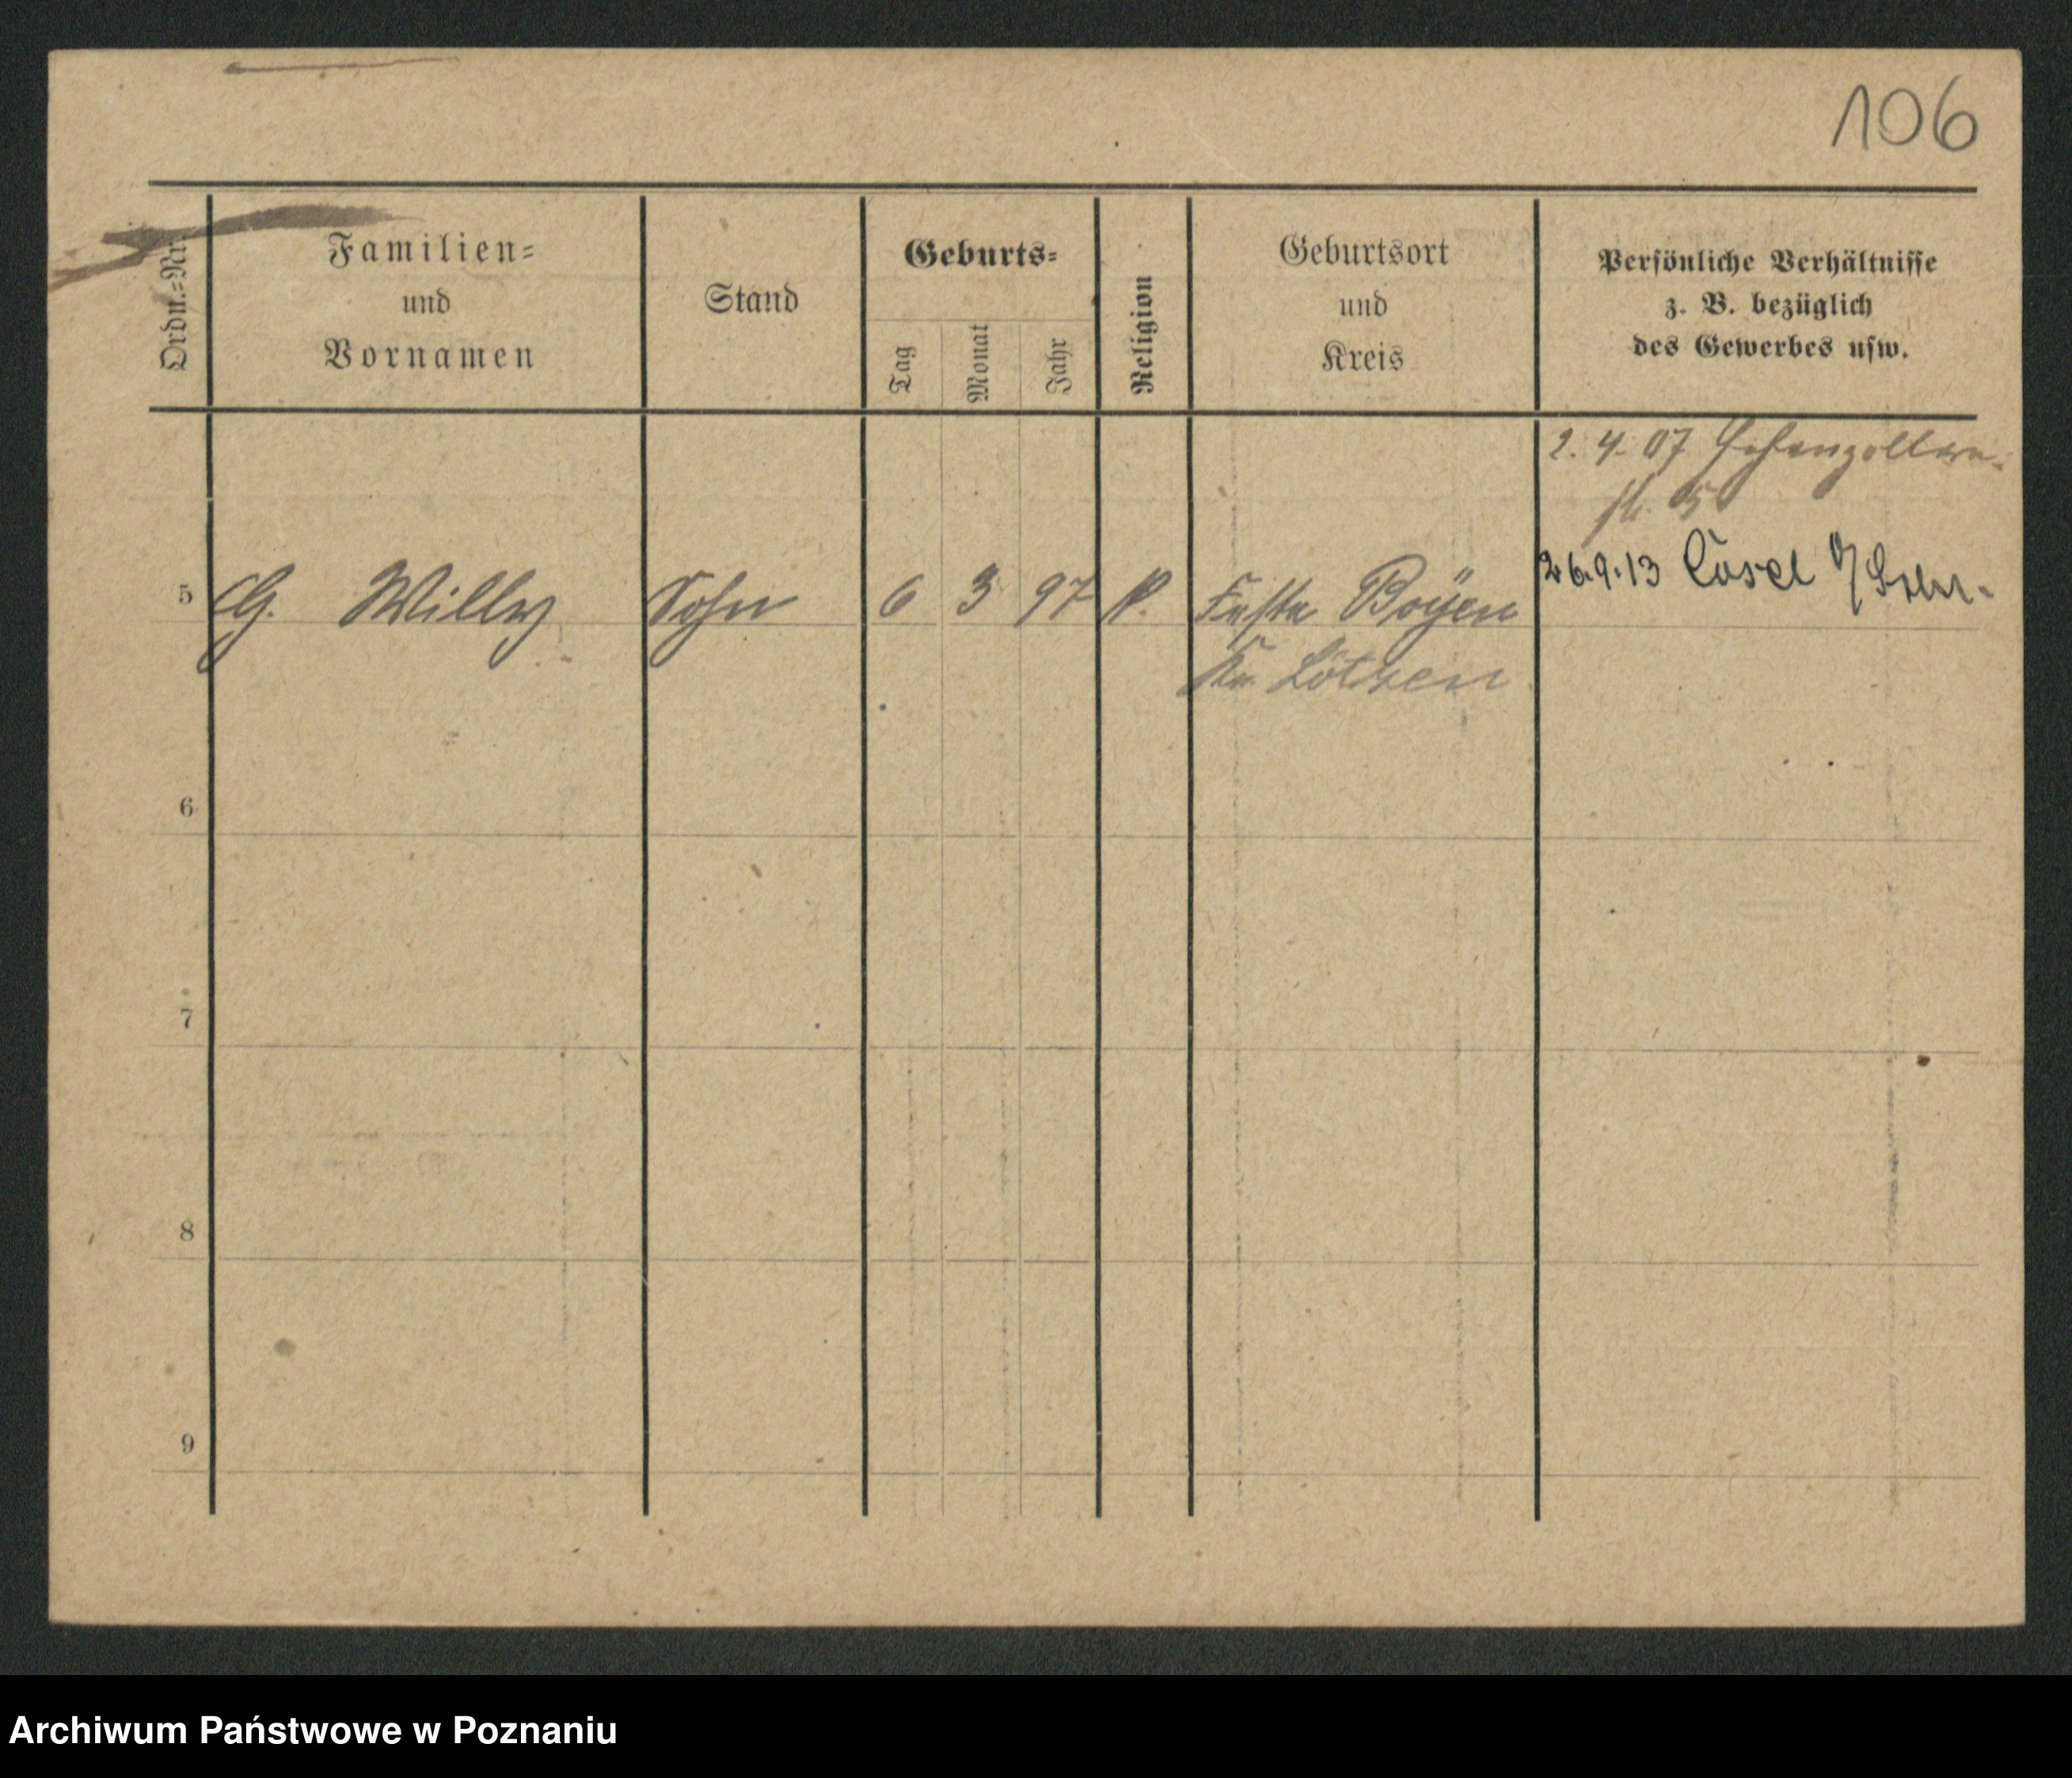 106
Ordn.-Nr.
Familien-
und
Vornamen
Stand
Geburts-
Tag
Monat
Jahr
Religion
Geburtsort
und
Kreis
Persönliche Verhältnisse
z. B. bezüglich
des Gewerbes usw.
2. 4. 07 Hohenzollern-
str. 5
5 G. Willy Sohn 6 3 97 Feste Boyen 26.9.13 Cosel
Kr. Lötzen
6
7
8
9
Archiwum Państwowe w Poznaniu